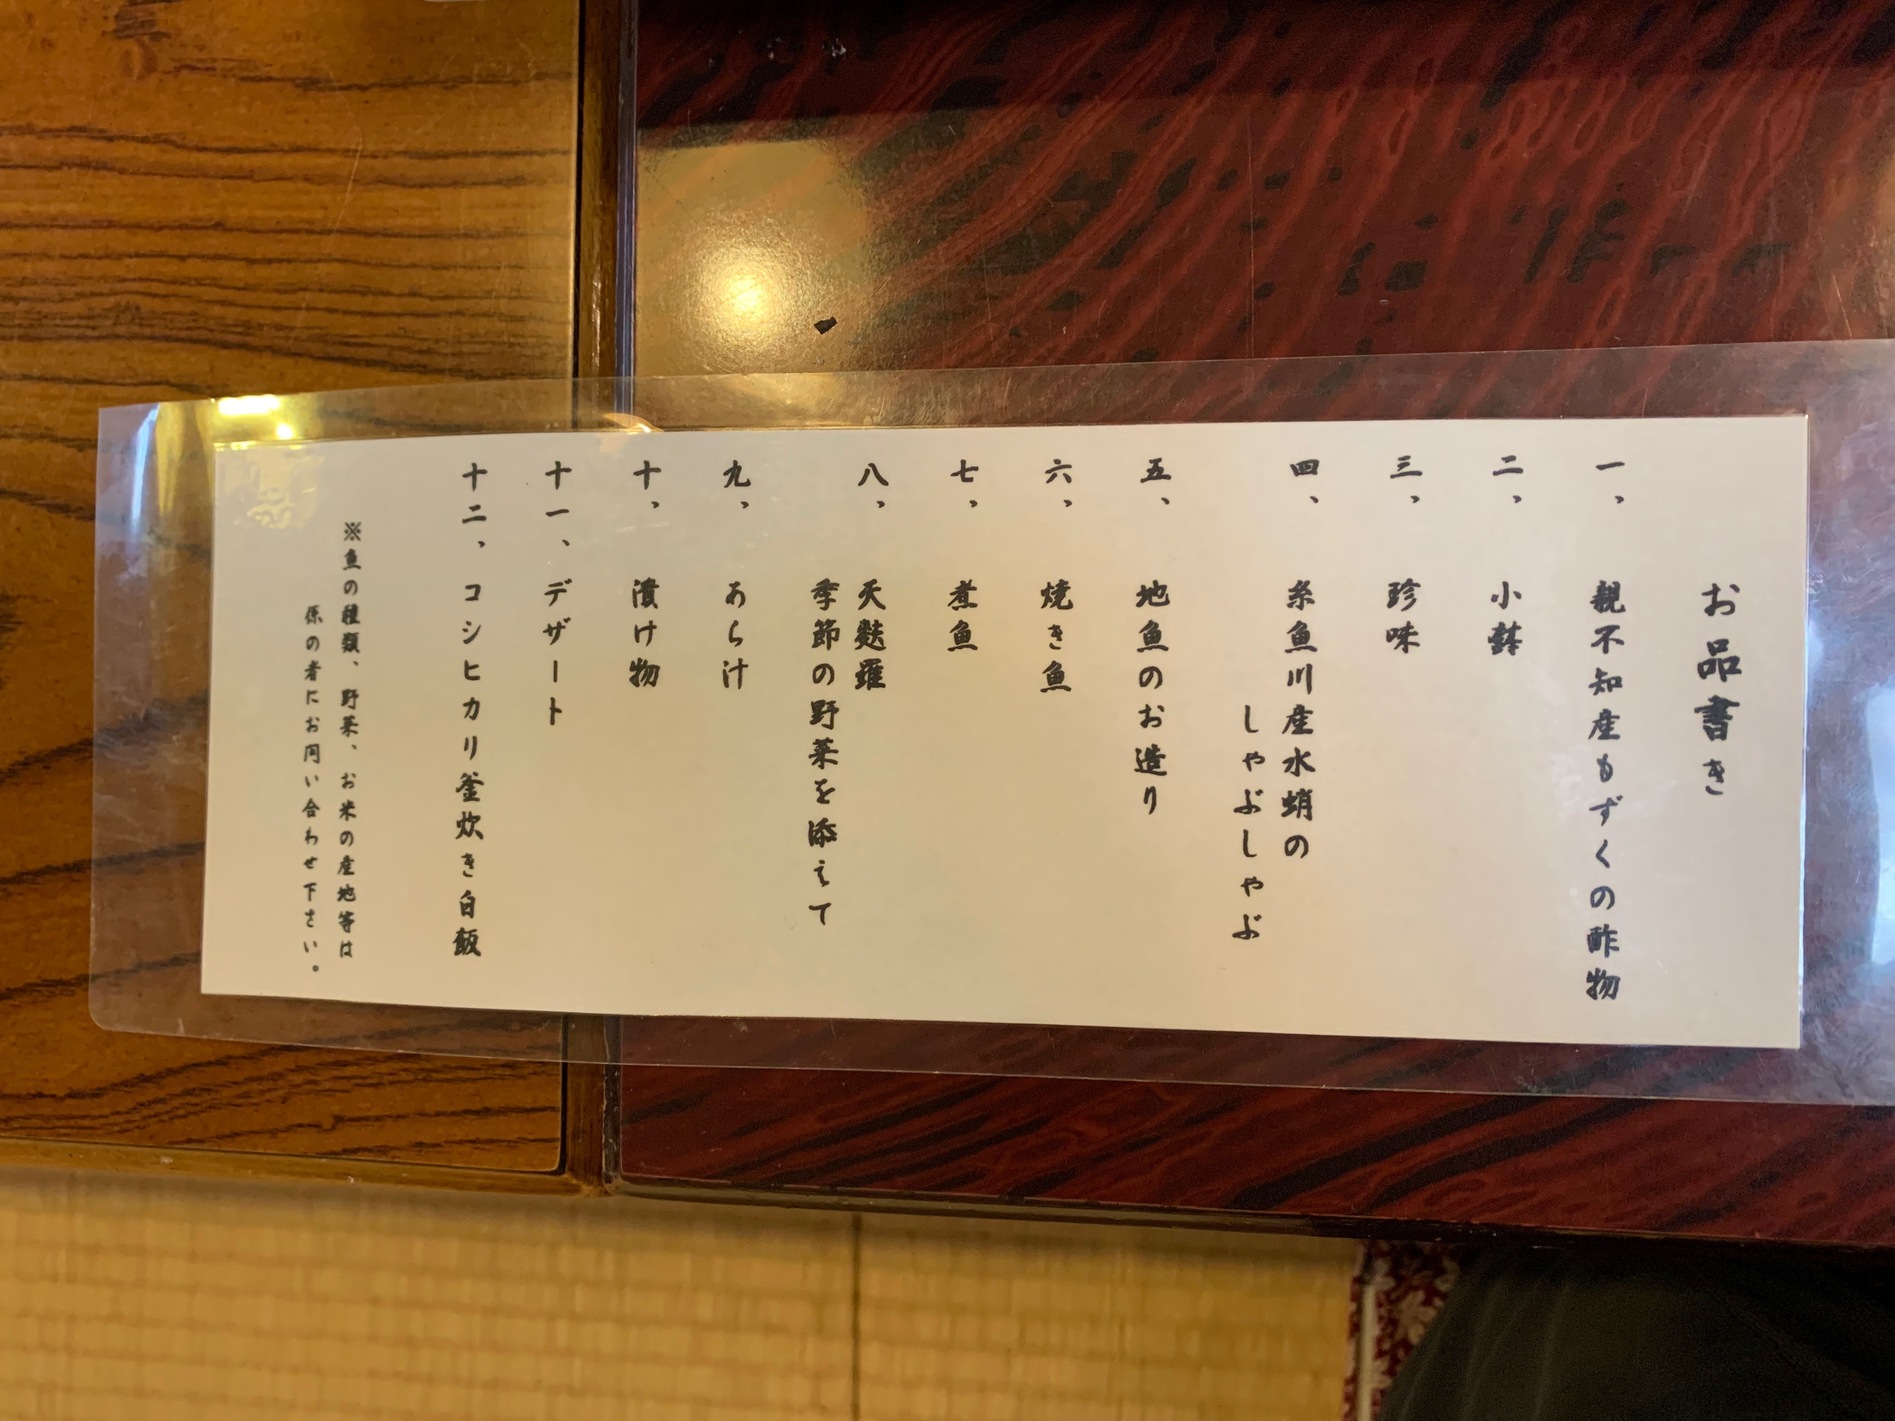 お品書き
一、親不知産もずくの酢物
二、小鉢
三、珍味
四、糸魚川産水蛸の
しゃぶしゃぶ
五、地魚のお造り
六、焼き魚
七、煮魚
八、天麩羅
季節の野菜を添えて
九、あら汁
十、漬け物
十一、デザート
十二、コシヒカリ釜炊き白飯
※魚の種類、野菜、お米の産地等は
係の者にお問い合わせ下さい。